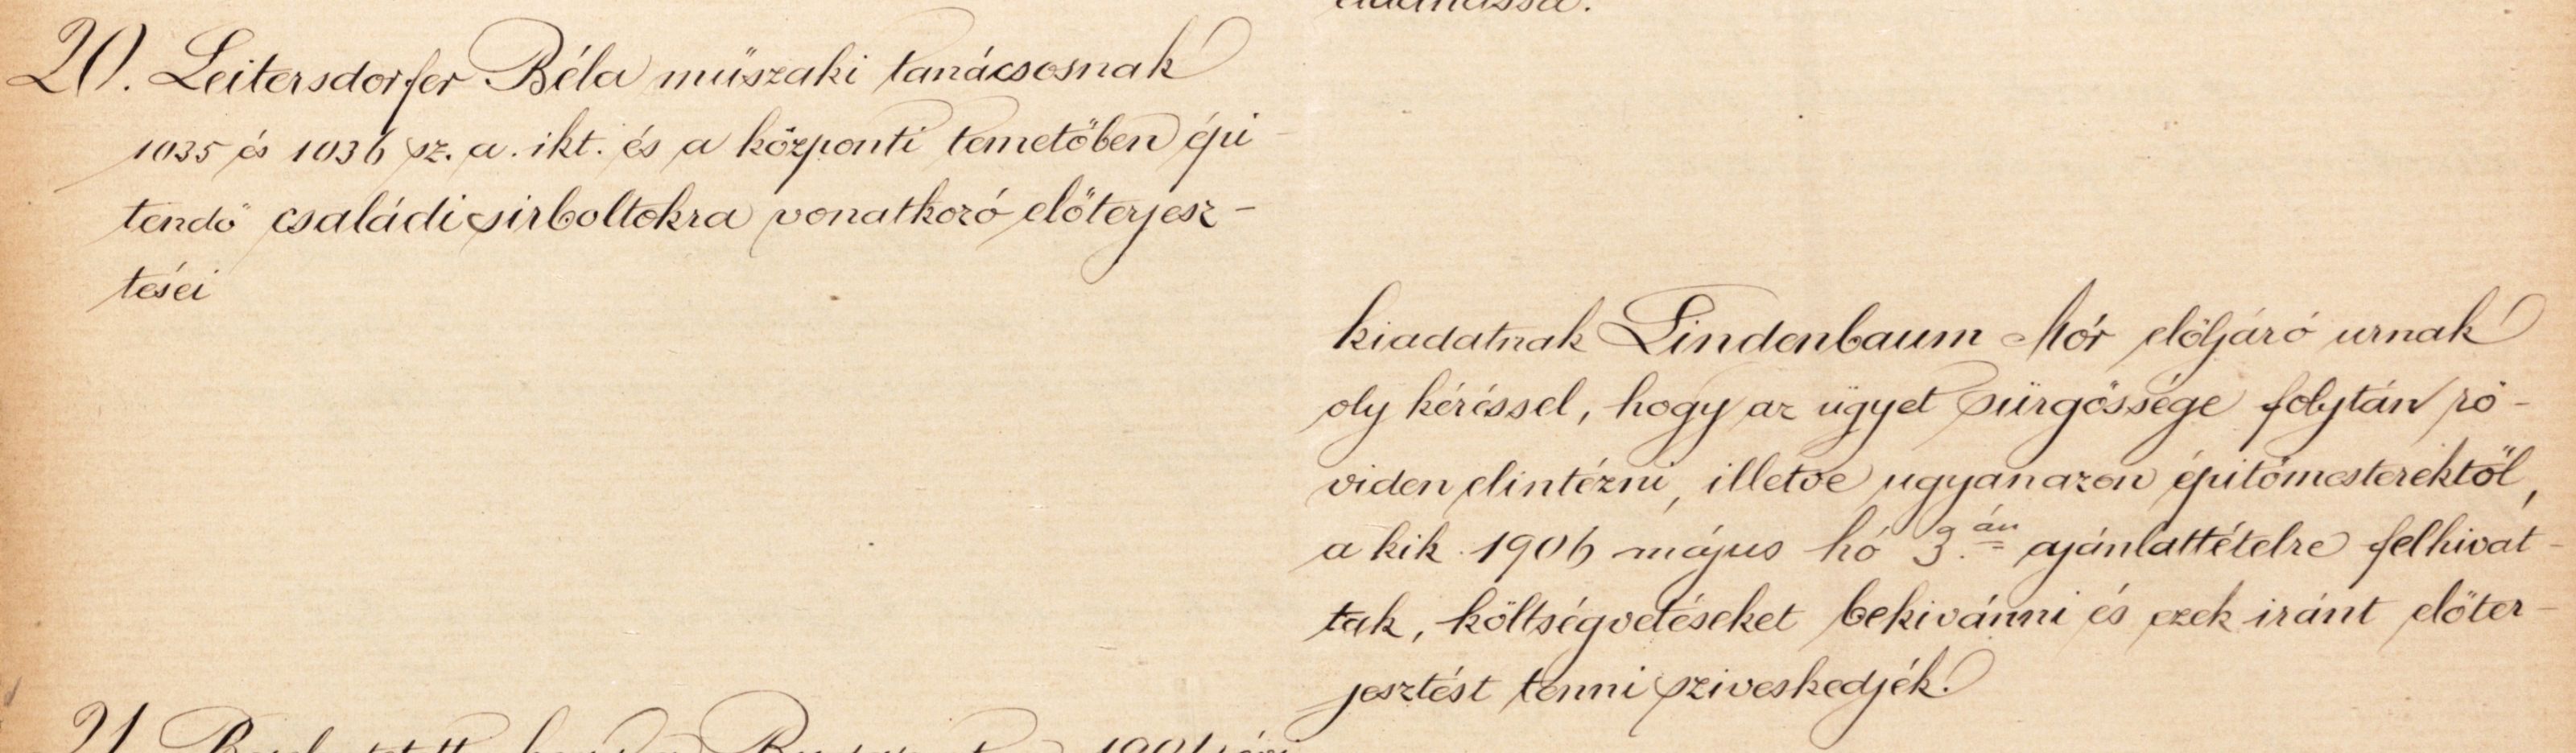 20. Leitersdorfer Béla müszaki tanácsosnak
1035 és 1036 sz. a. ikt. és a központi temetőben épi-
tendő családi sirboltokra vonatkozó előterjesz-
tései
kiadatnak Lindenbaum Mór előljáró urnak
oly kéréssel, hogy az ügyet sürgőssége folytán rö-
viden elintézni, illetve ugyanazon épitőmesterektől,
a kik 1906 május hó 3.án ajánlattételre felhivat-
tak, költségvetéseket bekivánni és ezek iránt előter-
jesztést tenni sziveskedjék.
21